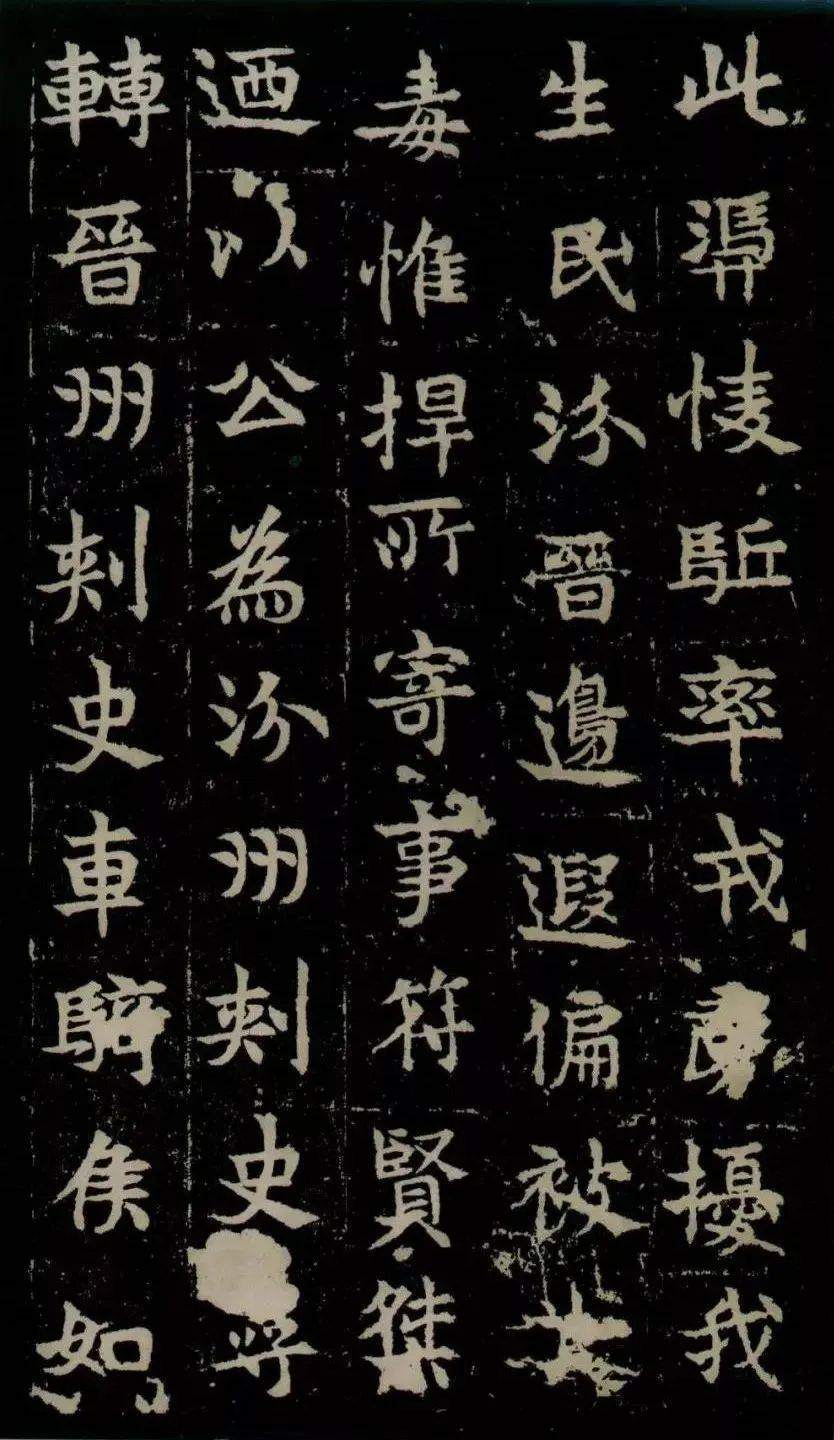 此駈率戎擾我
生民汾晉邊遐偏被其
毒惟捍所寄事符賢桀
迺以公為汾州刺史尋
轉晉州刺史車騎侯如